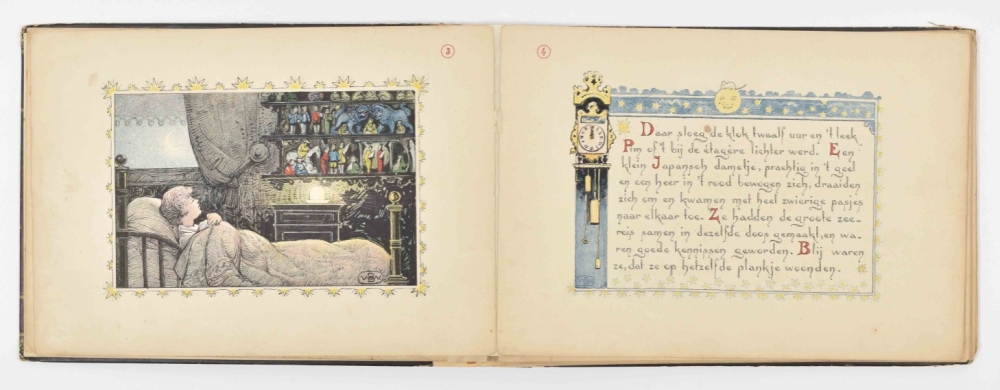 3
4
Daar sloeg de klok twaalf uur en 't leek
Pim of 't bij de étagère lichter werd. Een
klein Japansch dametje, prachtig in 't geel
en een heer in 't rood bewogen zich, draaiden
zich om en kwamen met heel zwierige pasjes
naar elkaar toe. Ze hadden de groote zee-
reis samen in dezelfde doos gemaakt, en wa-
ren goede kennissen geworden. Blij waren
ze, dat ze op hetzelfde plankje woonden.